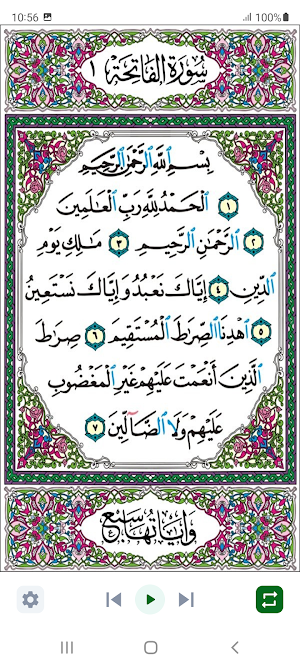 10:56 100%
سُورَةُ الفَاتِحَة ١
بِسْمِ اللَّهِ الرَّحْمَٰنِ الرَّحِيمِ
١ الْحَمْدُ لِلَّهِ رَبِّ الْعَالَمِينَ
٢ الرَّحْمَٰنِ الرَّحِيمِ ٣ مَالِكِ يَوْمِ
الدِّينِ ٤ إِيَّاكَ نَعْبُدُ وَإِيَّاكَ نَسْتَعِينُ
٥ اهْدِنَا الصِّرَاطَ الْمُسْتَقِيمَ ٦ صِرَاطَ
الَّذِينَ أَنْعَمْتَ عَلَيْهِمْ غَيْرِ الْمَغْضُوبِ
عَلَيْهِمْ وَلَا الضَّالِّينَ ٧
وَآيَاتُهَا سَبْعٌ